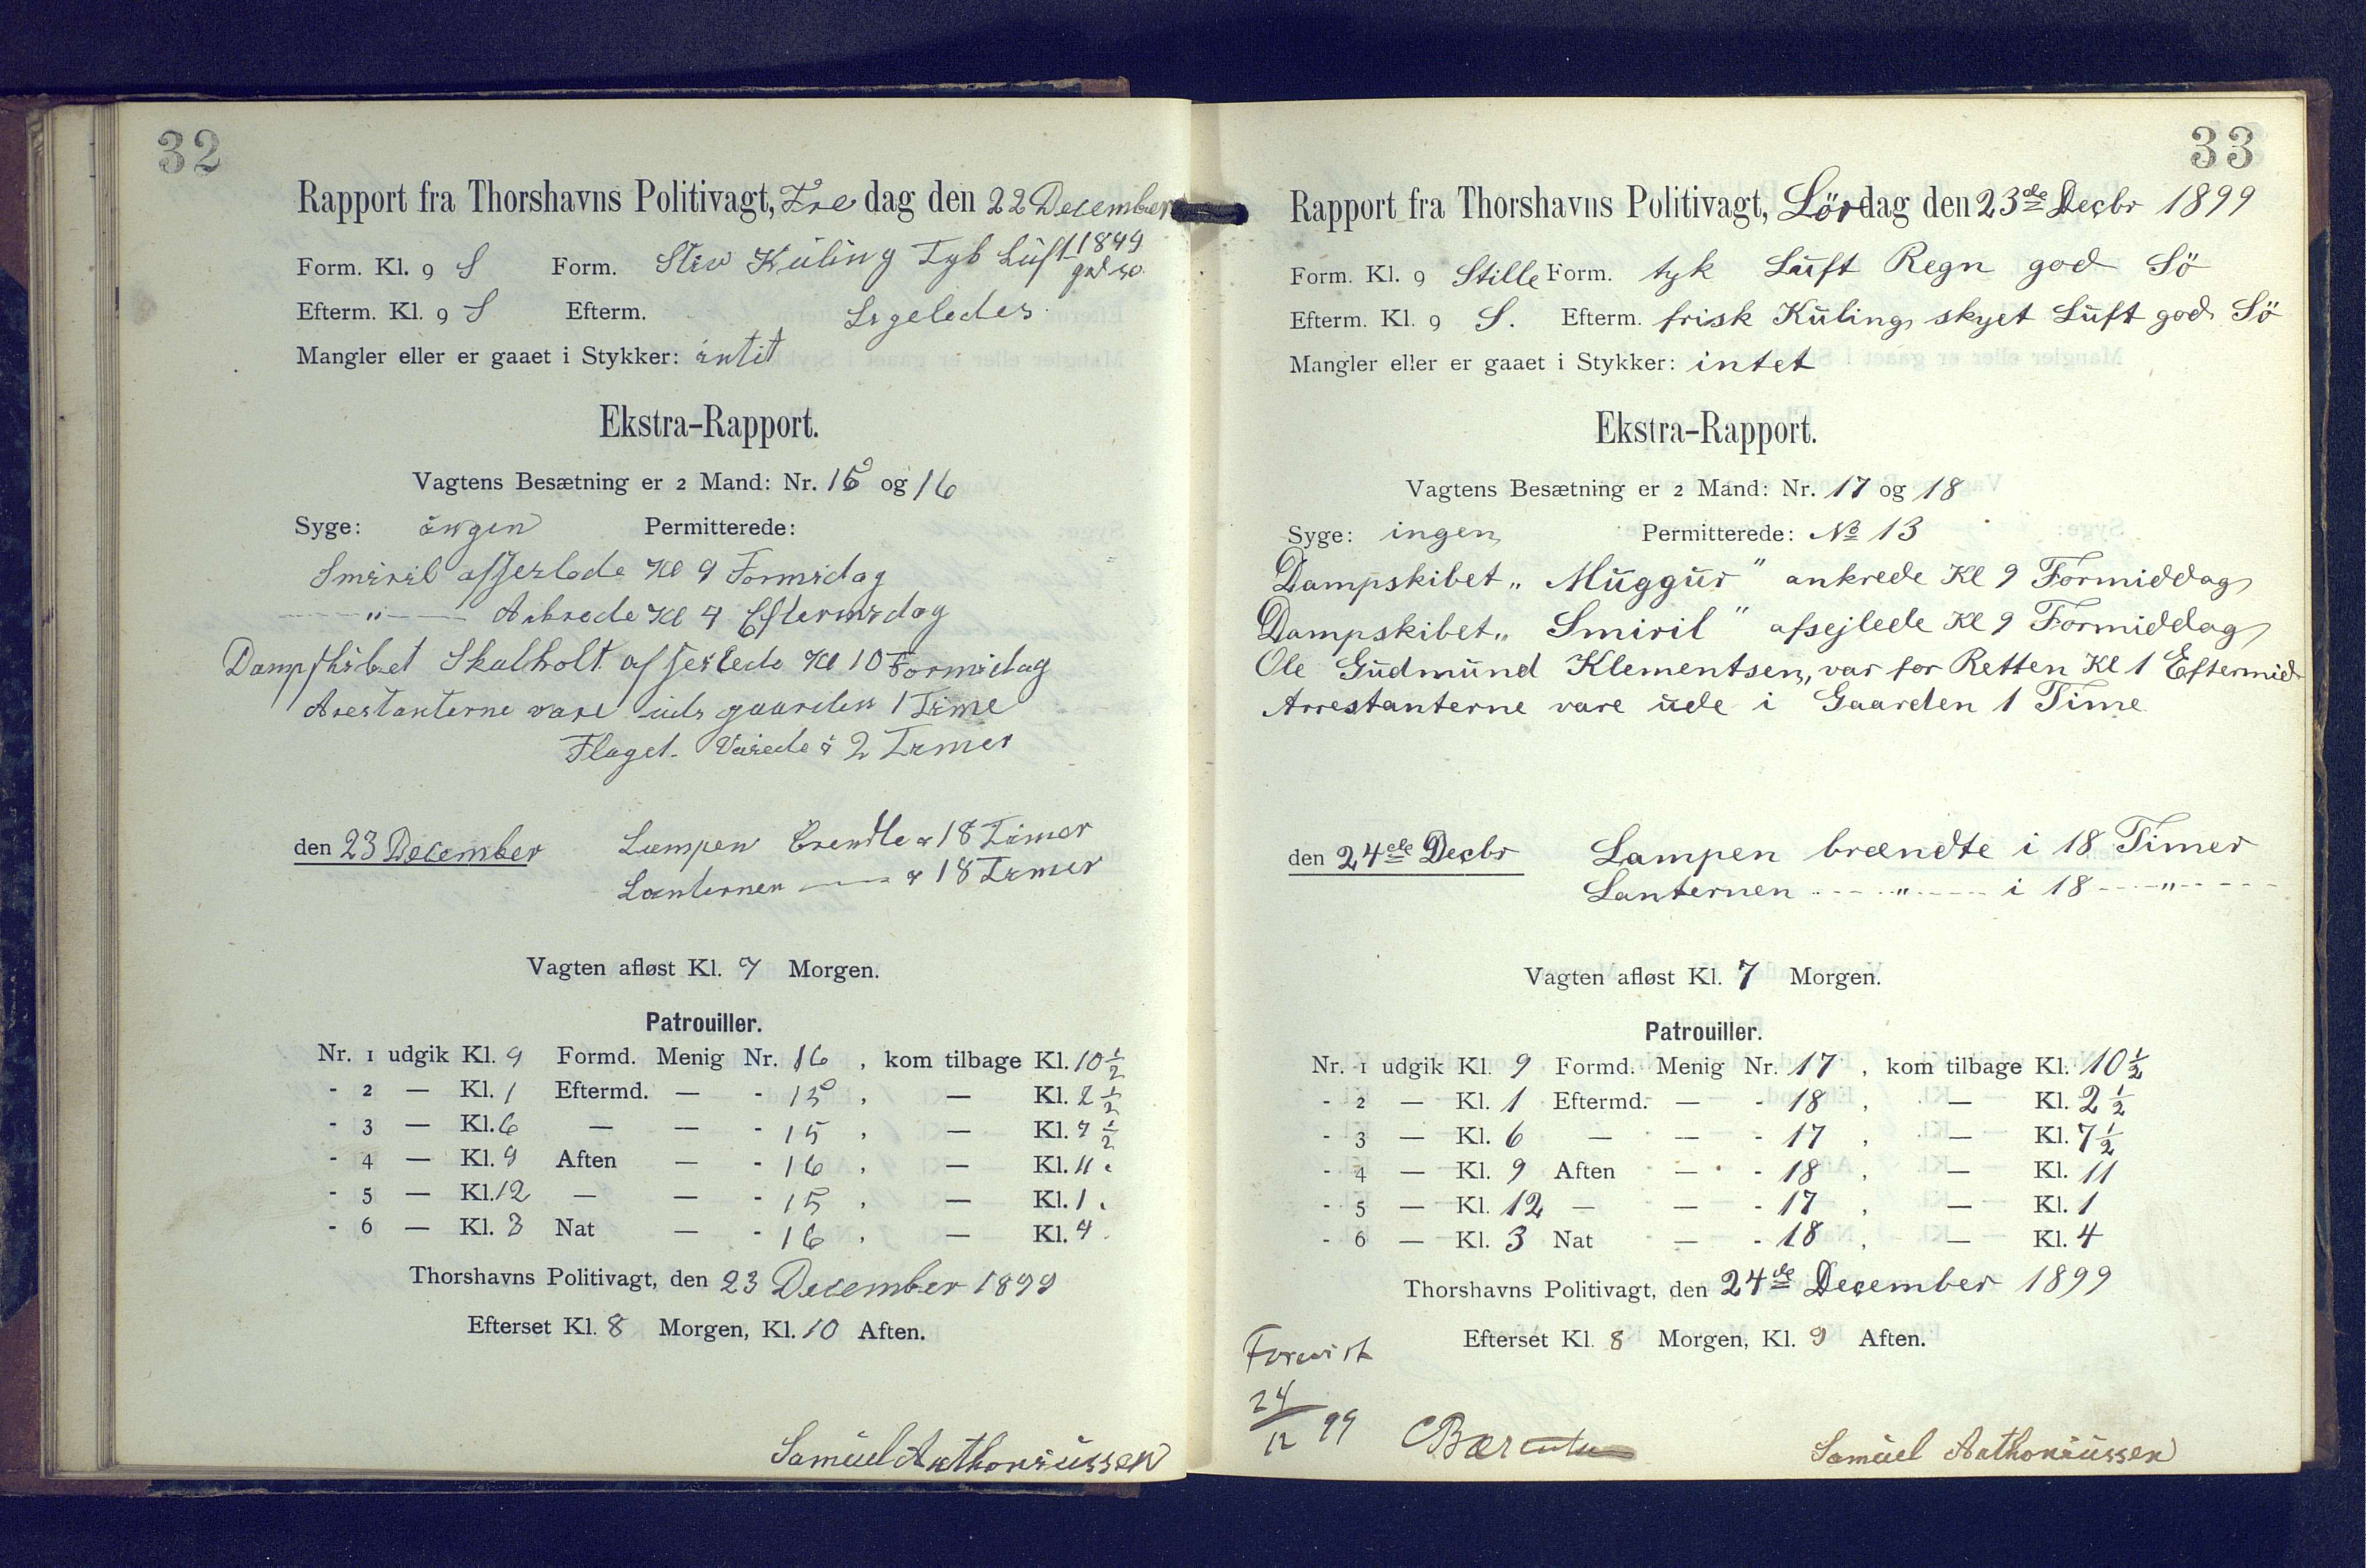 32
Rapport fra Thorshavns Politivagt, Fre dag den 22 December
1899
Form. Kl. 9 S Form. Stiv Kuling Tyk Luft god sö
Efterm. Kl. 9 S Efterm. Ligeledes
Mangler eller er gaaet i Stykker: intit
Ekstra-Rapport.
Vagtens Besætning er 2 Mand: Nr. 15 og 16
Syge: ingen Permitterede:
Smiril afsejlede Kl 9 Formidag
— „ — Ankrede Kl 4 Eftermidag
Dampskibet Skalholt afsejlede Kl 10 Formidag
Arestanterne vare ude i gaarden 1 Time
Flaget Vaiede i 2 Timer
den 23 December Lampen Brendte i 18 Timer
Lanternen — i 18 Timer
Vagten afløst Kl. 7 Morgen.
Patrouiller.
Nr. 1 udgik Kl. 9 Formd. Menig Nr. 16 , kom tilbage Kl. 10 ½
- 2 — Kl. 1 Eftermd. — - 15 , — Kl. 2 ½
- 3 — Kl. 6 — — - 15 , — Kl. 7 ½
- 4 — Kl. 9 Aften — - 16 , — Kl. 11.
- 5 — Kl. 12 — — - 15 , — Kl. 1.
- 6 — Kl. 3 Nat — - 16 , — Kl. 4.
Thorshavns Politivagt, den 23 December 1899
Efterset Kl. 8 Morgen, Kl. 10 Aften.
Samuel Anthoniussen
33
Rapport fra Thorshavns Politivagt, Lördag den 23de Decbr 1899
Form. Kl. 9 Stille Form. tyk Luft Regn god Sö
Efterm. Kl. 9 S. Efterm. frisk Kuling, skyet Luft god Sö
Mangler eller er gaaet i Stykker: intet
Ekstra-Rapport.
Vagtens Besætning er 2 Mand: Nr. 17 og 18
Syge: ingen Permitterede: No 13
Dampskibet „Muggur" ankrede Kl 9 Formiddag
Dampskibet „Smiril" afsejlede Kl 9 Formiddag
Ole Gudmund Klementsen, var for Retten Kl 1 Eftermid
Arrestanterne vare ude i Gaarden 1 Time
den 24de Decbr Lampen brændte i 18 Timer
Lanternen — „ — i 18 — „ —
Vagten afløst Kl. 7 Morgen.
Patrouiller.
Nr. 1 udgik Kl. 9 Formd. Menig Nr. 17 , kom tilbage Kl. 10 ½
- 2 — Kl. 1 Eftermd. — - 18 , — Kl. 2 ½
- 3 — Kl. 6 — — - 17 , — Kl. 7 ½
- 4 — Kl. 9 Aften — - 18 , — Kl. 11
- 5 — Kl. 12 — — - 17 , — Kl. 1
- 6 — Kl. 3 Nat — - 18 , — Kl. 4
Thorshavns Politivagt, den 24de December 1899
Efterset Kl. 8 Morgen, Kl. 9 Aften.
Forevist
24/12 99 CBærentsen
Samuel Anthoniussen